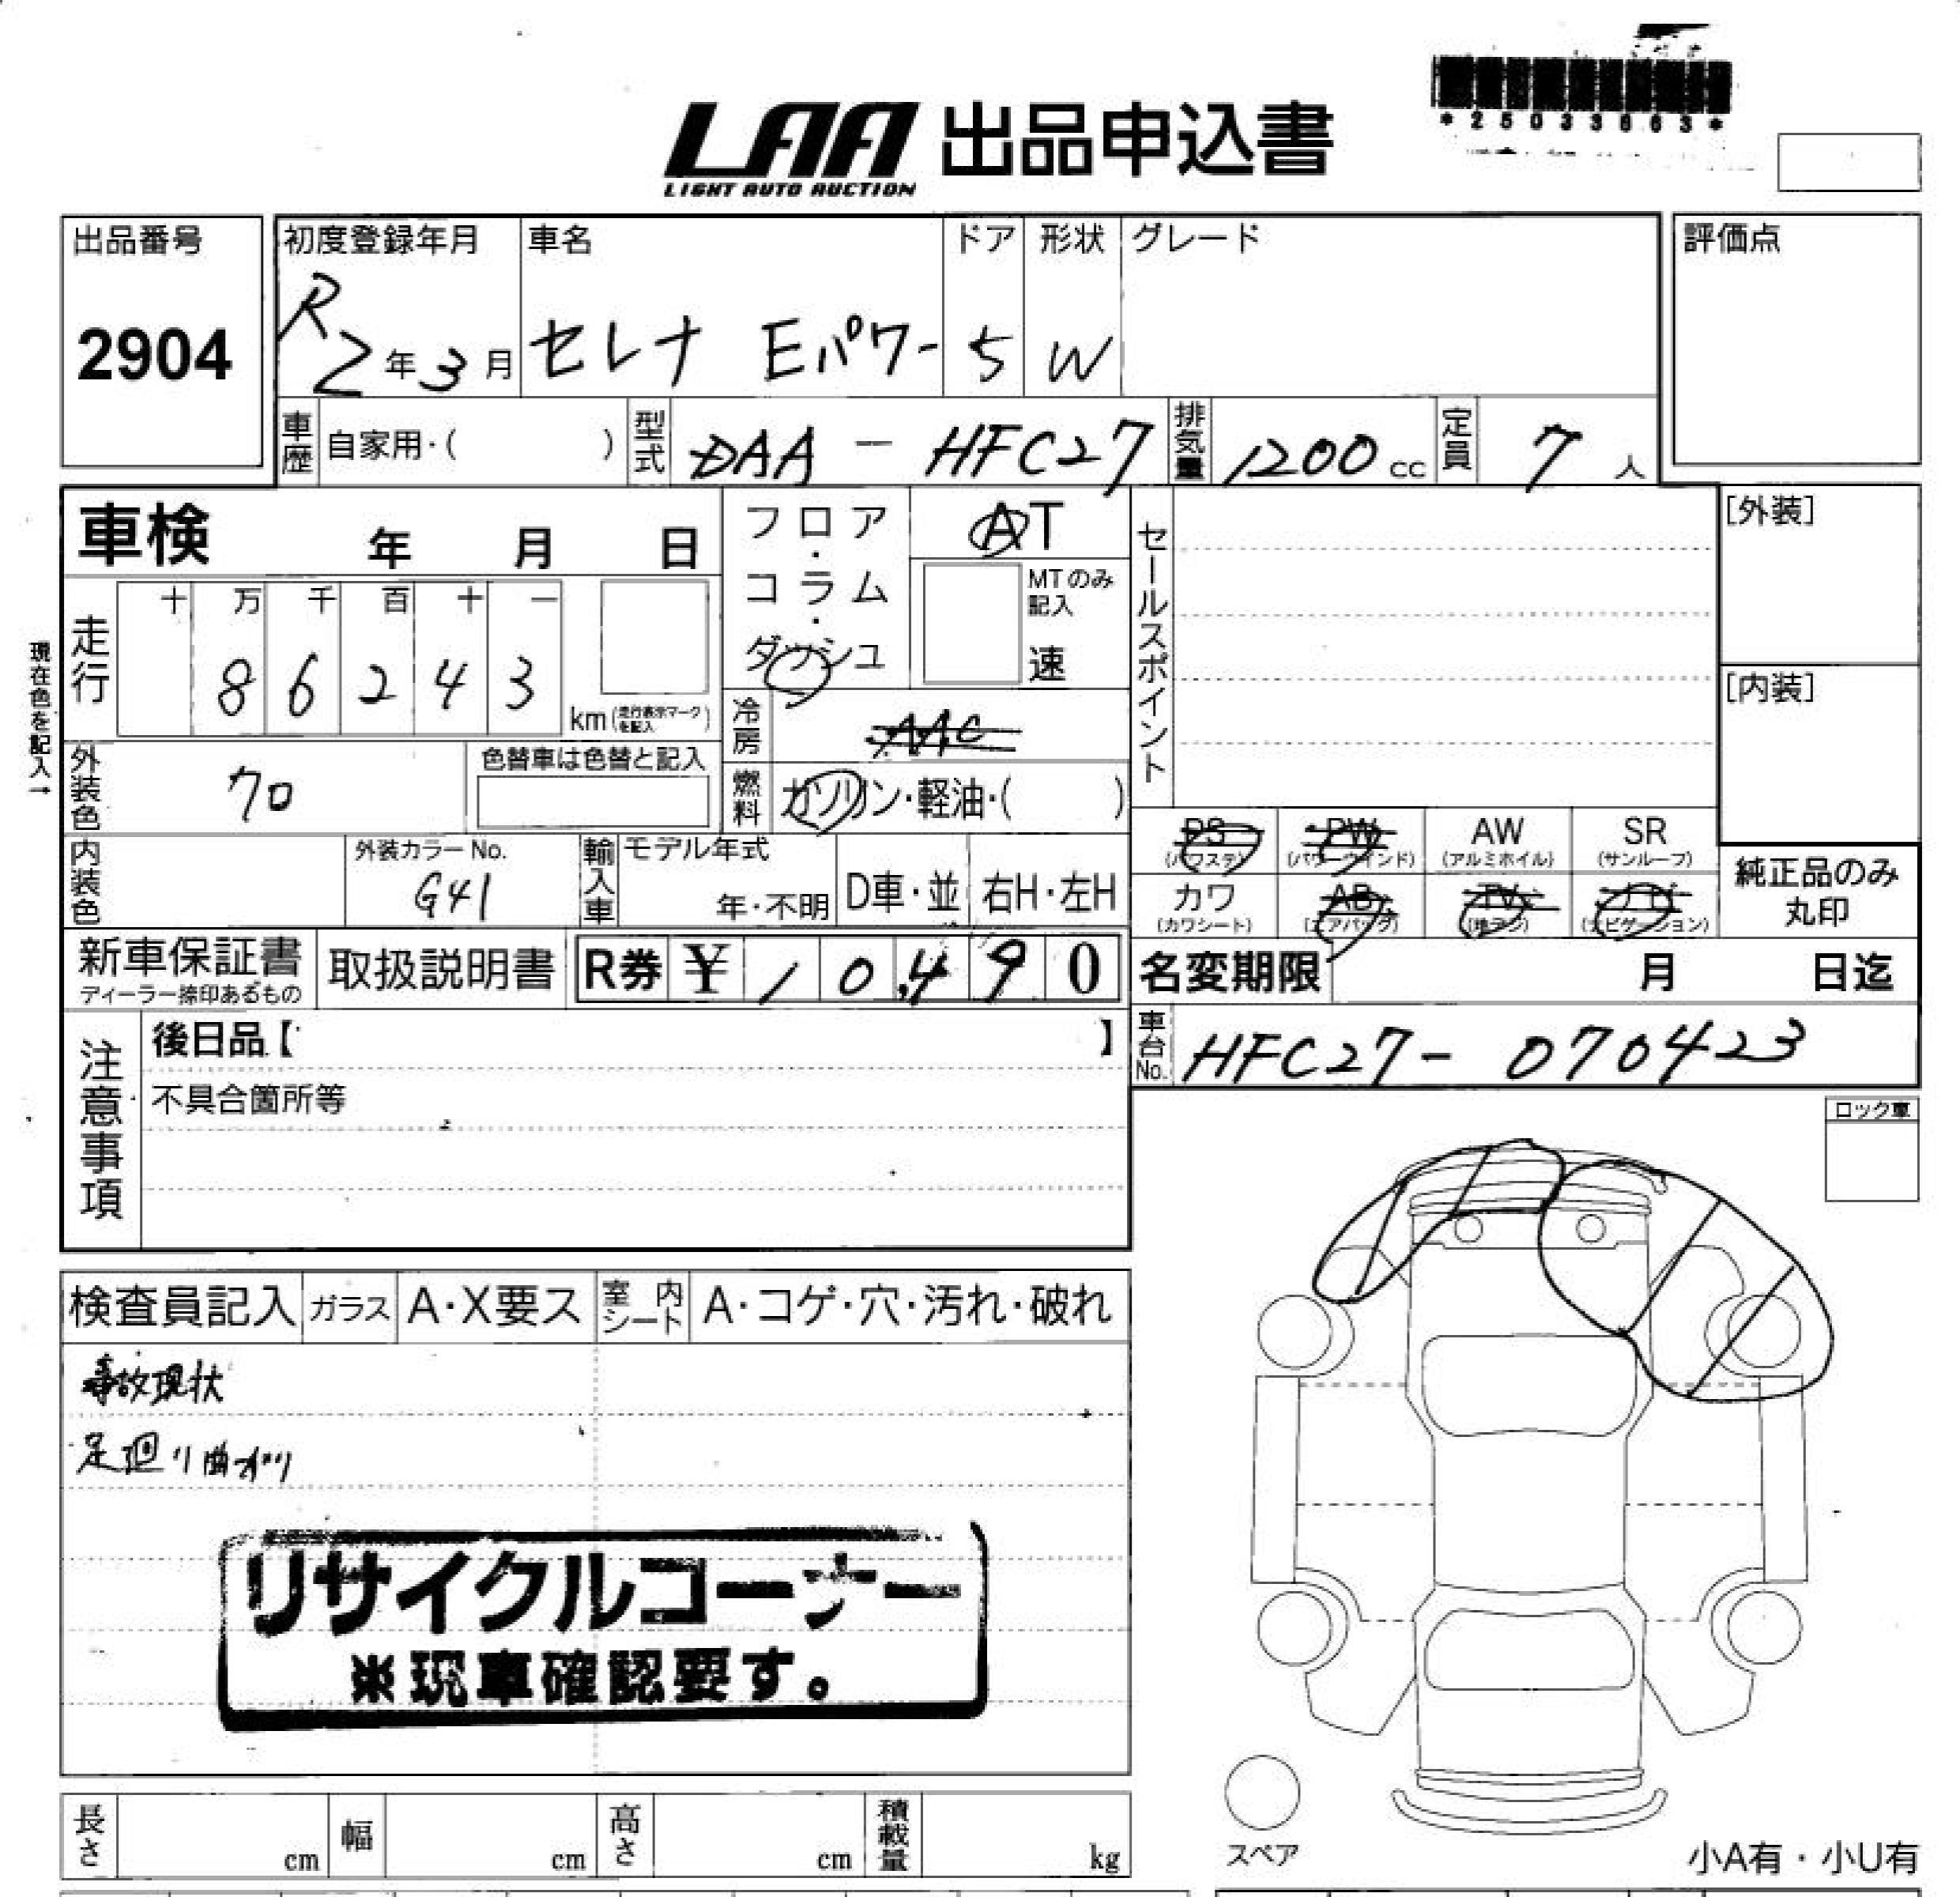 *25033663*
LAA 出品申込書
LIGHT AUTO AUCTION
出品番号 2904
初度登録年月 R2年3月
車名 セレナ Eパワー
ドア 5
形状 W
グレード
評価点
車歴 自家用・( )
型式 DAA-HFC27
排気量 1200cc
定員 7人
車検 年 月 日
フロア・コラム・ダッシュ
AT
MTのみ記入
速
セールスポイント
[外装]
[内装]
現在色を記入→
走行 十 万 千 百 十 一
86243
km(走行表示マークを記入)
冷房 AAC
外装色 クロ
色替車は色替と記入
燃料 ガソリン・軽油・( )
PS (パワステ)
PW (パワーウインド)
AW (アルミホイル)
SR (サンルーフ)
カワ (カワシート)
AB (エアバッグ)
TV (地デジ)
ナビ (ナビゲーション)
純正品のみ丸印
内装色
外装カラーNo. G41
輸入車 モデル年式 年・不明
D車・並
右H・左H
新車保証書
ディーラー捺印あるもの
取扱説明書
R券 ¥10,490
名変期限 月 日迄
車台No. HFC27-070423
注意事項
後日品【 】
不具合箇所等
ロック車
検査員記入
ガラス A・X要ス
室内シート A・コゲ・穴・汚れ・破れ
事故現状
足廻り曲がり
リサイクルコーナー
※現車確認要す。
スペア
小A有・小U有
長さ cm
幅 cm
高さ cm
積載量 kg